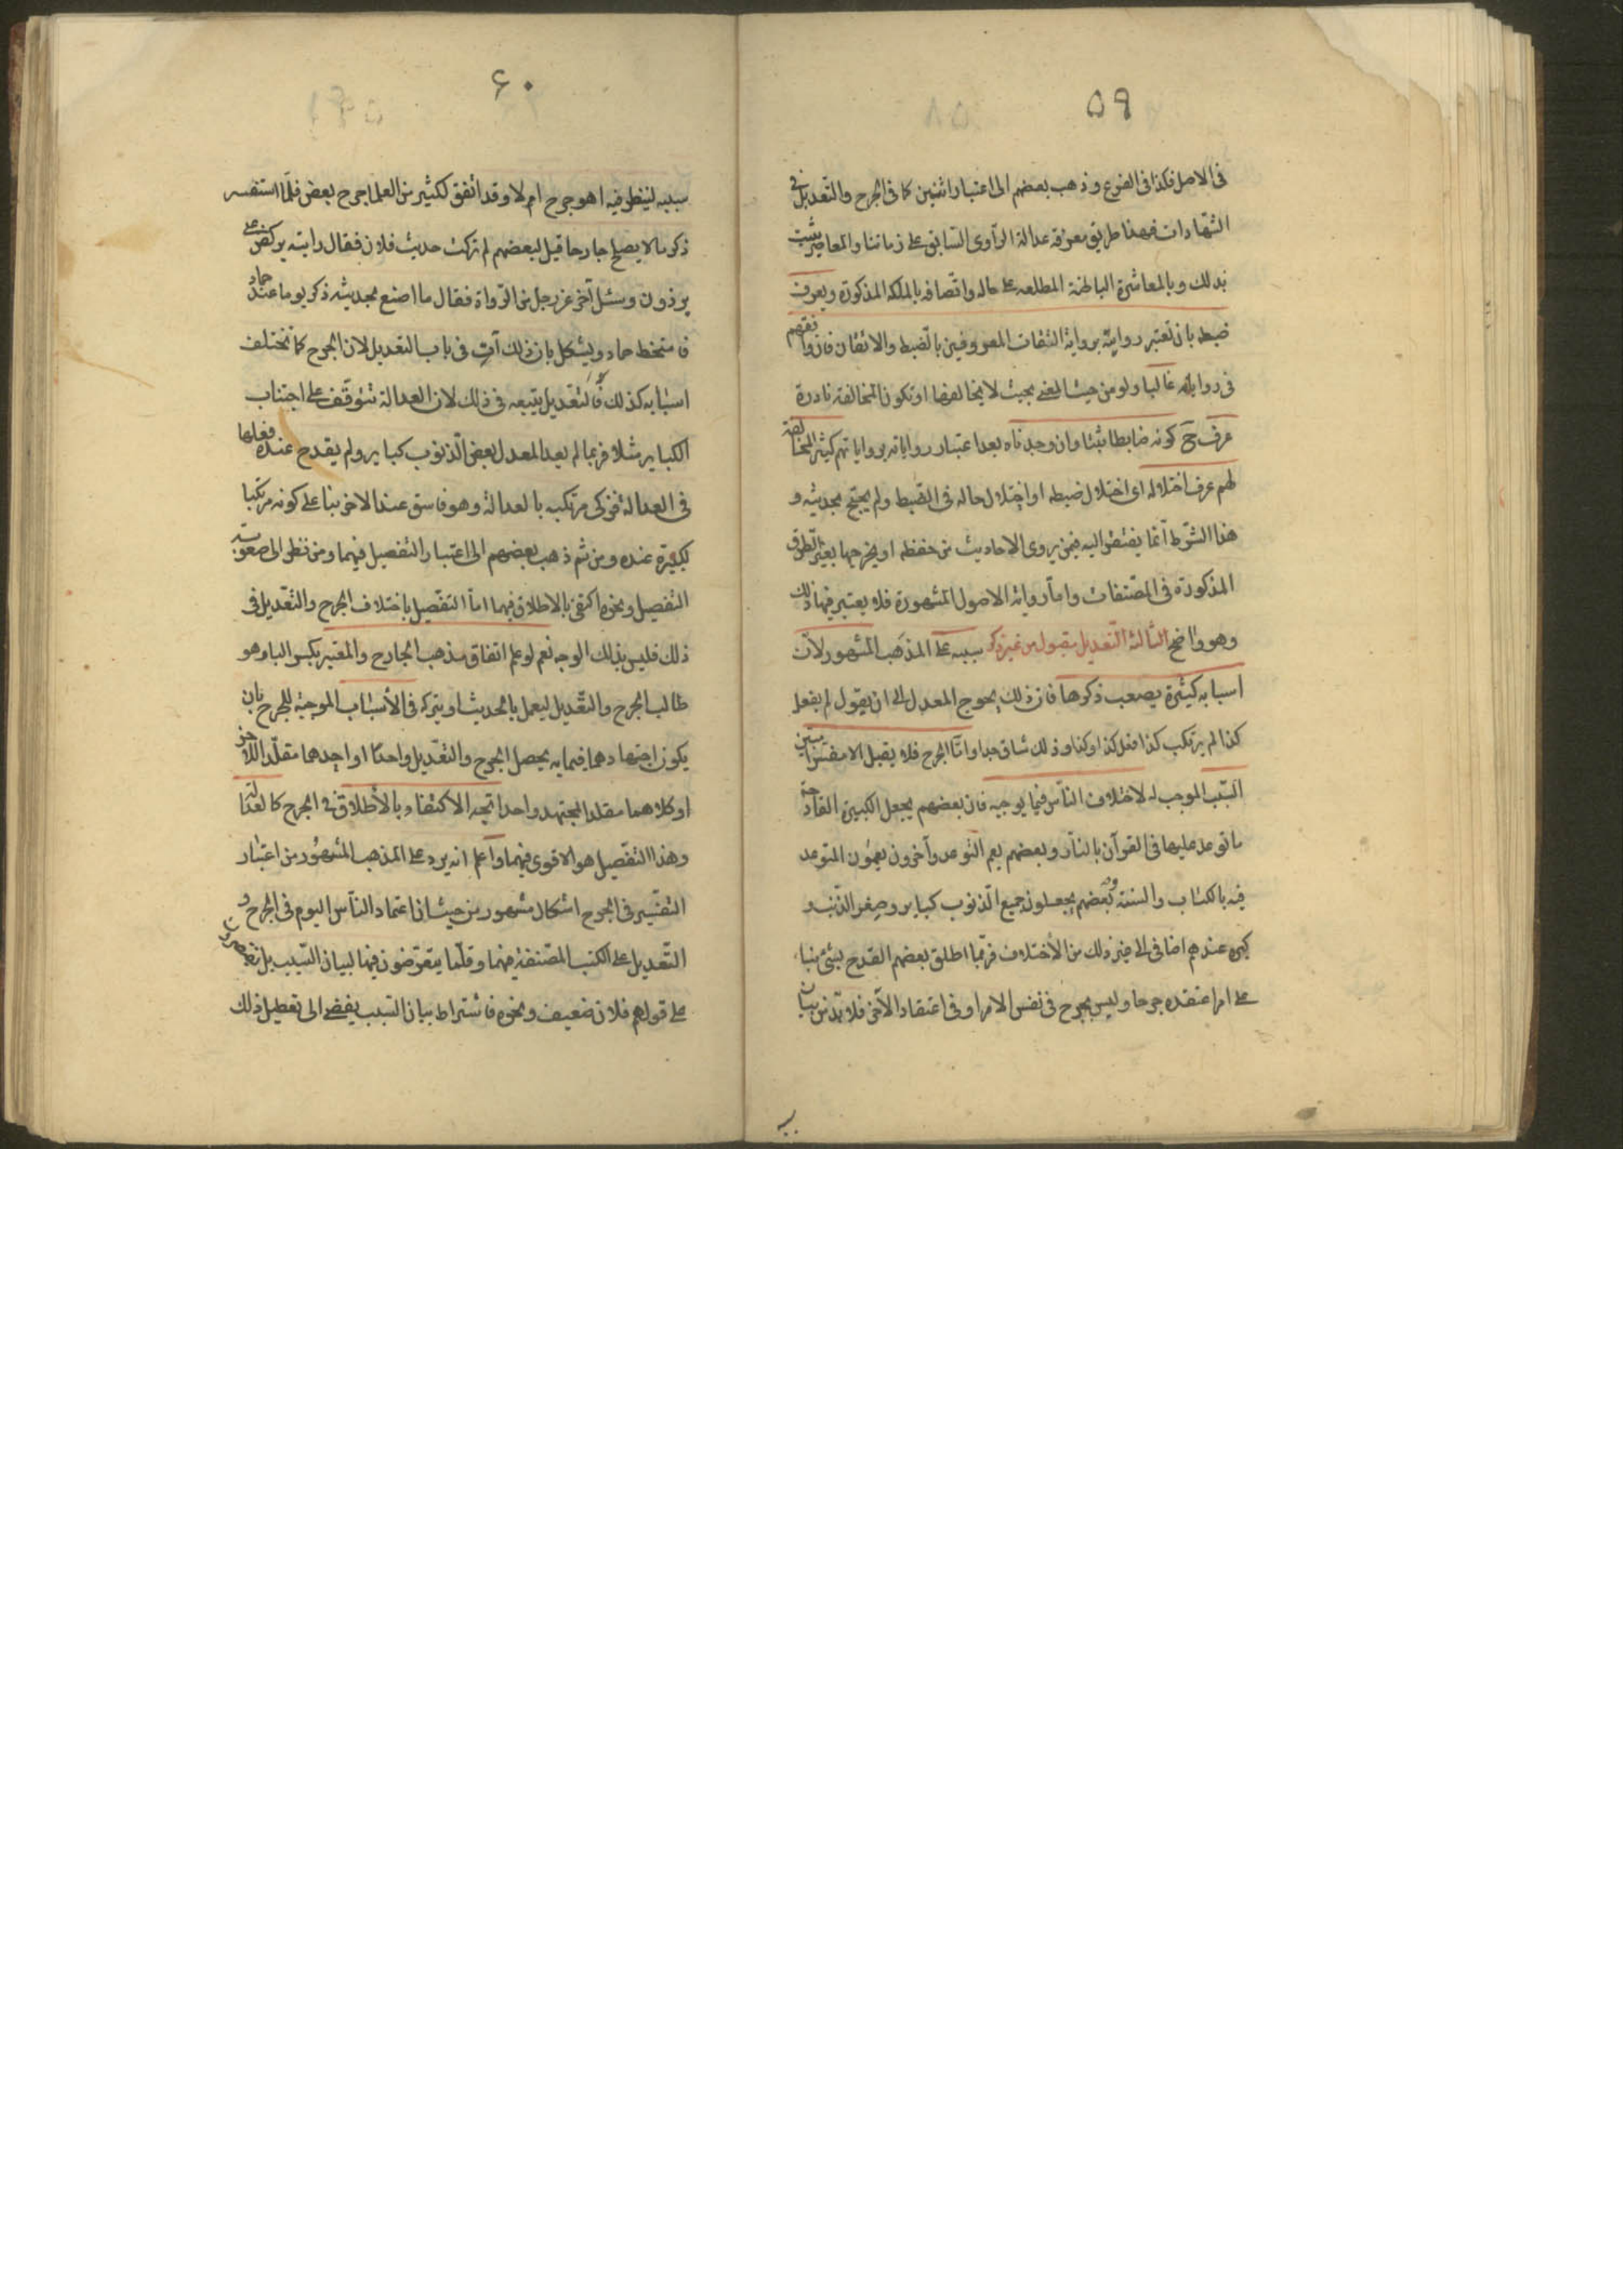 ٥٩
فى الاصل فكذا فى الفرع وذهب بعضهم الى اعتبار اثنين كما فى الجرح والتعديل فى
الشهادات فهذا طريق معرفة عدالة الراوى السابق على زماننا والمعاصر يثبت
بذلك وبالمعاشرة الباطنة المطلعة على حاله واتصافه بالملكة المذكورة ويعرف
ضبطه بان تعتبر روايته برواية الثقات المعروفين بالضبط والاتقان فان وافقهم
فى رواياته غالبا ولو من حيث المعنى بحيث لا يخالفها او تكون المخالفة نادرة
عرف ح كونه ضابطا ثبتا وان وجدناه بعد اعتبار رواياته برواياتهم كثير المخالفة
لهم عرف اختلاله اى اختلال ضبطه او اختلال حاله فى الضبط ولم يحتج بحديثه و
هذا الشرط انما يفتقر اليه فيمن يروى الاحاديث من حفظه او يخرجها بغير الطرق
المذكورة فى المصنفات واما رواية الاصول المشهورة فلا يعتبر فيها ذلك
وهو واضح الثالثة التعديل مقبول من غير ذكر سببه على المذهب المشهور لان
اسبابه كثيرة يصعب ذكرها فان ذلك يحوج المعدل الى ان يقول لم يفعل
كذا لم يرتكب كذا فعل كذا وكذا وذلك شاق جدا واما الجرح فلا يقبل الا مفسرا مبين
السبب الموجب له لاختلاف الناس فيما يوجبه فان بعضهم يجعل الكبيرة القادحة
ما توعد عليها فى القرآن بالنار وبعضهم يعم التوعد وآخرون يعمون المتوعد
فيه بالكتاب والسنة وبعضهم يجعلون جميع الذنوب كباير وصغر الذنب و
كبره عندهم اضافى الى غير ذلك من الاختلاف فربما اطلق بعضهم القدح بشئ بناء
على امر اعتقده جرحا وليس بجرح فى نفس الامر او فى اعتقاد الآخر فلا بد من بيان
٦٠
سببه لينظر فيه اهو جرح ام لا وقد اتفق لكثير من العلما جرح بعض فلما استفسر
ذكر ما لا يصلح جارحا قيل لبعضهم لم تركت حديث فلان فقال رايته يركض على
برذون وسئل آخر عن رجل من الرواة فقال ما اصنع بحديثه ذكر يوما عند حماد
فامتخط حماد ويشكل بان ذلك آت فى باب التعديل لان الجرح كما تختلف
اسبابه كذلك فالتعديل يتبعه فى ذلك لان العدالة تتوقف على اجتناب
الكباير مثلا فربما لم يعد المعدل بعض الذنوب كباير ولم يقدح عنده فعلها
فى العدالة فزكى مرتكبه بالعدالة وهو فاسق عند الاخر بنا على كونه مرتكبا
لكبيرة عنده ومن ثم ذهب بعضهم الى اعتبار التفصيل فيهما ومن نظر الى صعوبة
التفصيل ونحوه اكتفى بالاطلاق فيهما اما التفصيل باختلاف الجرح والتعديل فى
ذلك فليس بذلك الوجه نعم لو علم اتفاق مذهب الجارح والمعتبر بكسر الباء وهو
طالب الجرح والتعديل ليعمل بالحديث او يتركه فى الأسباب الموجبة للجرح بان
يكون اجتهادهما فيما به يحصل الجرح والتعديل واحدا او احدهما مقلدا للآخر
او كلاهما مقلدا لمجتهد واحد اتجه الاكتفاء بالأطلاق فى الجرح كالعدالة
وهذا التفصيل هو الاقوى فيهما واعلم انه يرد على المذهب المشهور من اعتبار
التفسير فى الجرح اشكال مشهور من حيث ان اعتماد الناس اليوم فى الجرح و
التعديل على الكتب المصنفة فيهما وقلما يتعرضون فيها لبيان السبب بل يقتصرون
على قولهم فلان ضعيف ونحوه فاشتراط بيان السبب يفضى الى تعطيل ذلك